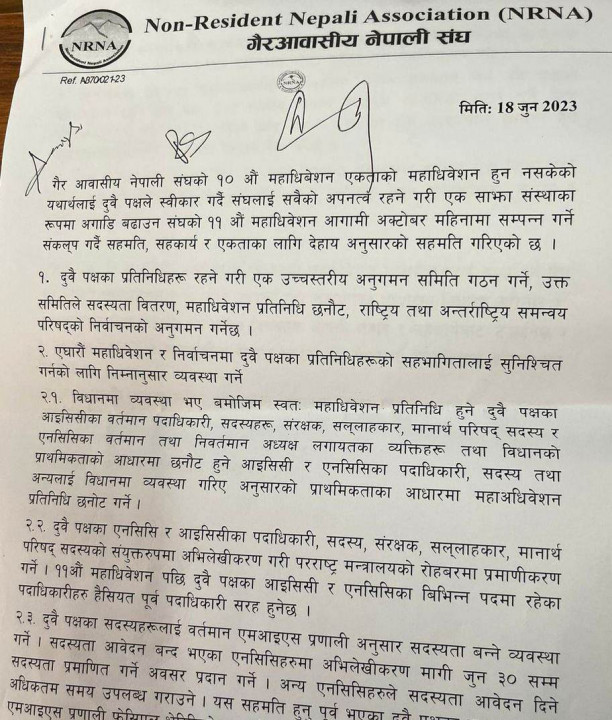 Non-Resident Nepali Association (NRNA)
गैरआवासीय नेपाली संघ
NRNA
Ref. A870/021-23
NRNA
मितिः 18 जुन 2023
गैर आवासीय नेपाली संघको १० औं महाधिबेशन एकताको महाधिवेशन हुन नसकेको
यथार्थलाई दुवै पक्षले स्वीकार गर्दै संघलाई सबैको अपनत्व रहने गरी एक साझा संस्थाका
रूपमा अगाडि बढाउन संघको ११ औं महाधिवेशन आगामी अक्टोबर महिनामा सम्पन्न गर्ने
संकल्प गर्दै सहमति, सहकार्य र एकताका लागि देहाय अनुसारको सहमति गरिएको छ ।
१. दुवै पक्षका प्रतिनिधिहरू रहने गरी एक उच्चस्तरीय अनुगमन समिति गठन गर्ने, उक्त
समितिले सदस्यता वितरण, महाधिवेशन प्रतिनिधि छनौट, राष्ट्रिय तथा अन्तर्राष्ट्रिय समन्वय
परिषद्को निर्वाचनको अनुगमन गर्नेछ ।
२. एघारौं महाधिवेशन र निर्वाचनमा दुवै पक्षका प्रतिनिधिहरूको सहभागितालाई सुनिश्चित
गर्नको लागि निम्नानुसार व्यवस्था गर्ने
२.१. विधानमा व्यवस्था भए बमोजिम स्वतः महाधिवेशन प्रतिनिधि हुने दुवै पक्षका
आइसिसीका वर्तमान पदाधिकारी, सदस्यहरू, संरक्षक, सल्लाहकार, मानार्थ परिषद् सदस्य र
एनसिसिका वर्तमान तथा निवर्तमान अध्यक्ष लगायतका व्यक्तिहरू तथा विधानको
प्राथमिकताको आधारमा छनौट हुने आइसिसी र एनसिसिका पदाधिकारी, सदस्य तथा
अन्यलाई विधानमा व्यवस्था गरिए अनुसारको प्राथमिकताका आधारमा महाअधिवेशन
प्रतिनिधि छनोट गर्ने ।
२.२. दुवै पक्षका एनसिसि र आइसिसीका पदाधिकारी, सदस्य, संरक्षक, सल्लाहकार, मानार्थ
परिषद् सदस्यको संयुक्तरुपमा अभिलेखीकरण गरी परराष्ट्र मन्त्रालयको रोहबरमा प्रमाणीकरण
गर्ने । ११औं महाधिवेशन पछि दुवै पक्षका आइसिसी र एनसिसिका बिभिन्न पदमा रहेका
पदाधिकारीहरु हैसियत पूर्व पदाधिकारी सरह हुनेछ ।
२.३. दुवै पक्षका सदस्यहरूलाई वर्तमान एमआइएस प्रणाली अनुसार सदस्यता बन्ने व्यवस्था
गर्ने । सदस्यता आवेदन बन्द भएका एनसिसिहरुमा अभिलेखीकरण मागी जुन ३० सम्म
सदस्यता प्रमाणित गर्ने अवसर प्रदान गर्ने । अन्य एनसिसिहरुले सदस्यता आवेदन दिने
अधिकतम समय उपलब्ध गराउने । यस सहमति हुनु पूर्व भएका दुवै
एमआइएस प्रणाली